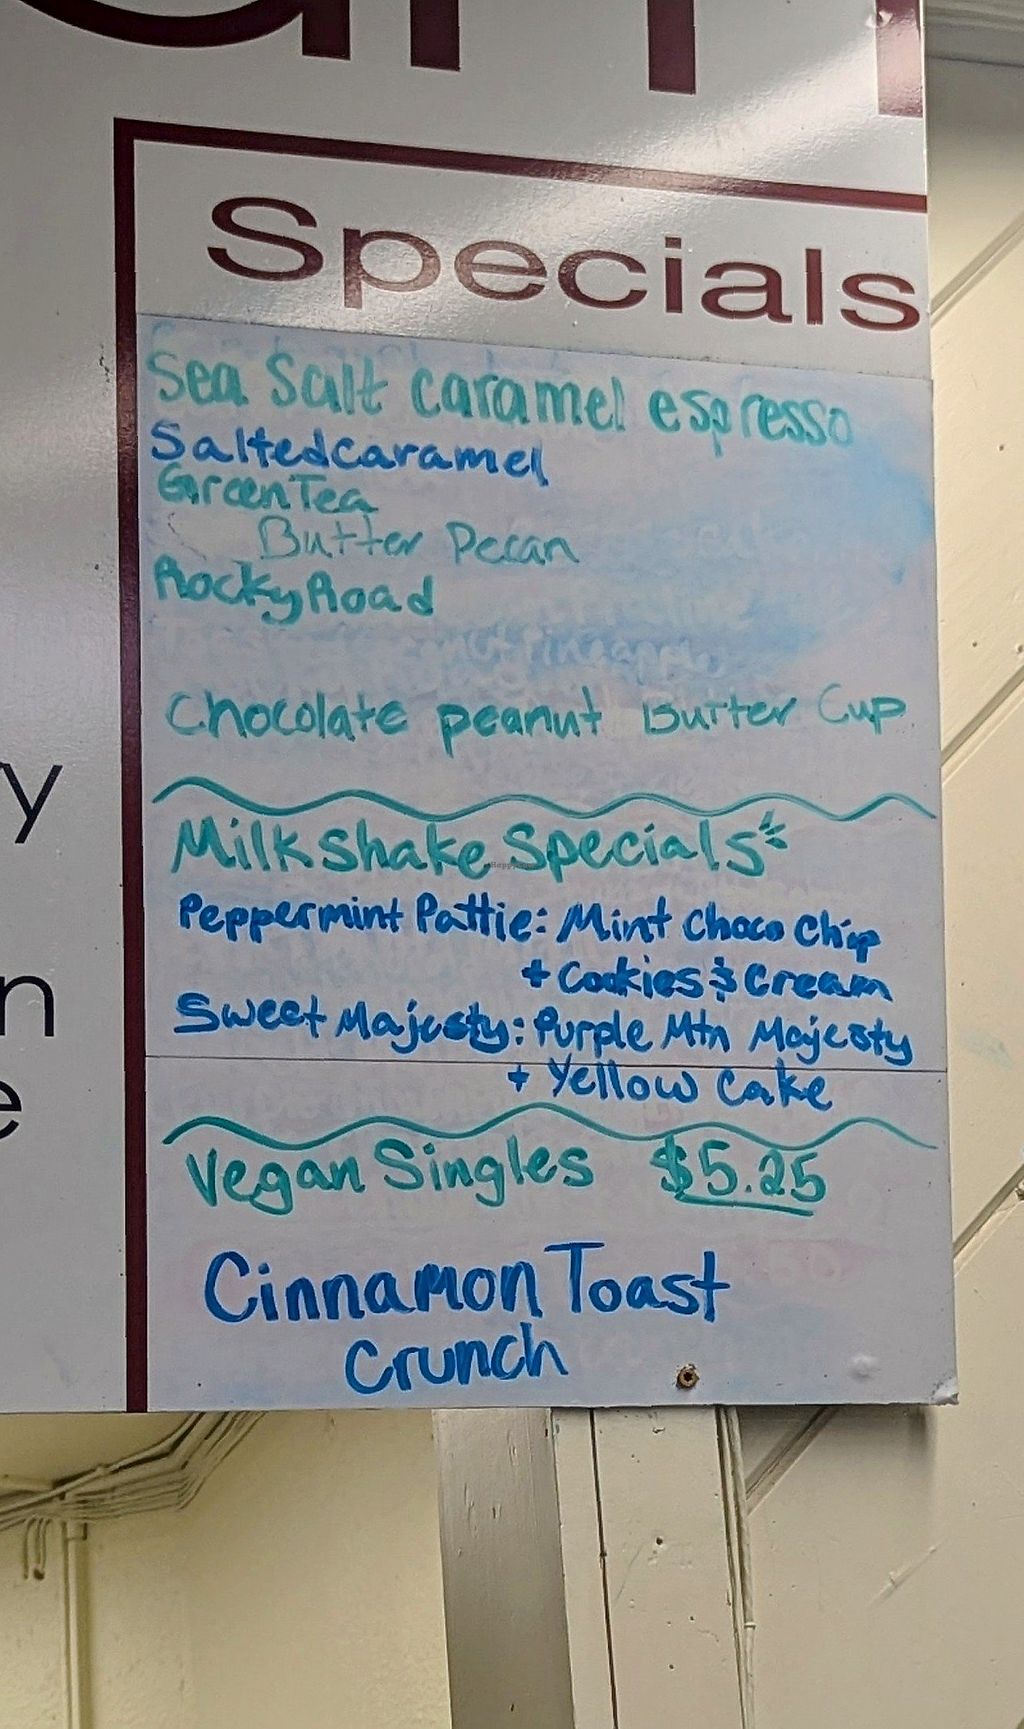 Specials
Sea Salt caramel espresso
Salted caramel
Green Tea
Butter Pecan
Rocky Road
Pineapple
Chocolate peanut Butter Cup
Milkshake Specials
Peppermint Pattie: Mint Choco Chip
+ Cookies & Cream
Sweet Majesty: Purple Mtn Majesty
+ Yellow Cake
Vegan Singles $5.25
Cinnamon Toast
Crunch
y
n
e